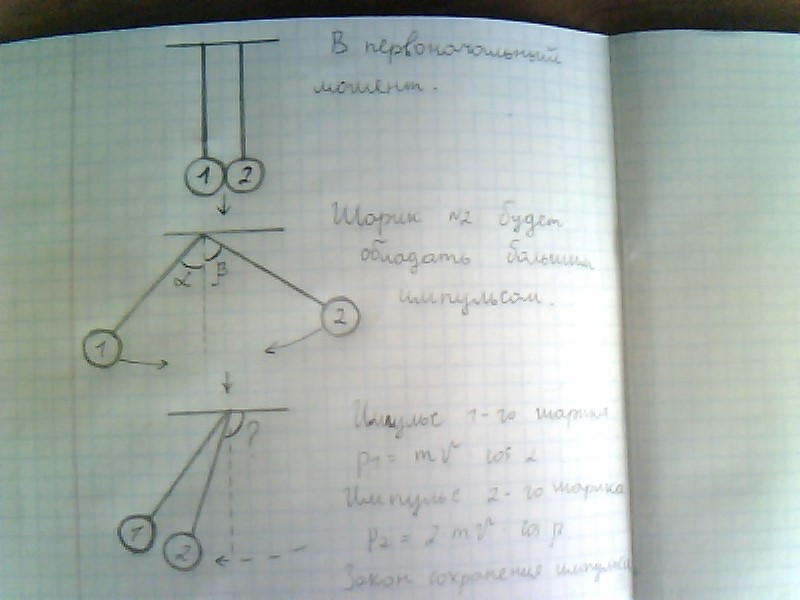 В первоначальный
момент.
1 2
Шарик №2 будет
обладать большим
импульсом.
α β
1
2
Импульс 1-го шарика
p₁ = mv cos α
?
Импульс 2-го шарика
p₂ = 2mv cos β
1
2
Закон сохранения импульса